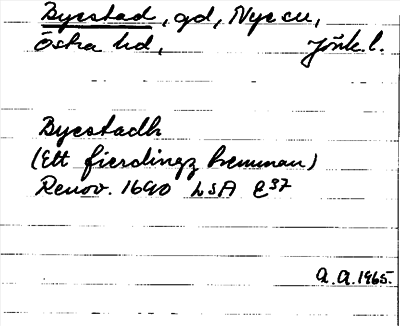 Byestad, gd, Nye cu,
Östra hd, Jönk. l.
Byestadh
(Ett fierdingz hemman)
Renov. 1690 LSA E37
A. A. 1965.